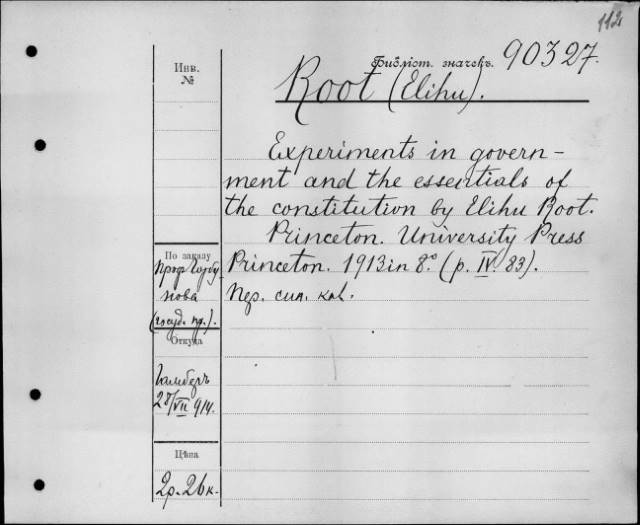 112
Библіот. значекъ. 90327.
Инв.
№
Root (Elihu).
Experiments in govern-
ment and the essentials of
the constitution by Elihu Root.
Princeton. University Press
Princeton. 1913 in 8.° (p. IV. 83).
Пер. син. кал.
По заказу
проф. Горбу
нова
(госуд. пр.).
Откуда
28/VII 914.
Цѣна
2р. 26к.